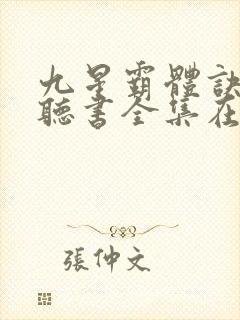 九星霸體訣
聽書全集在
張仲文